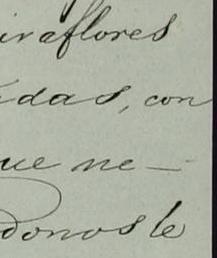 iraflores
idas, con
ue ne-
donosle